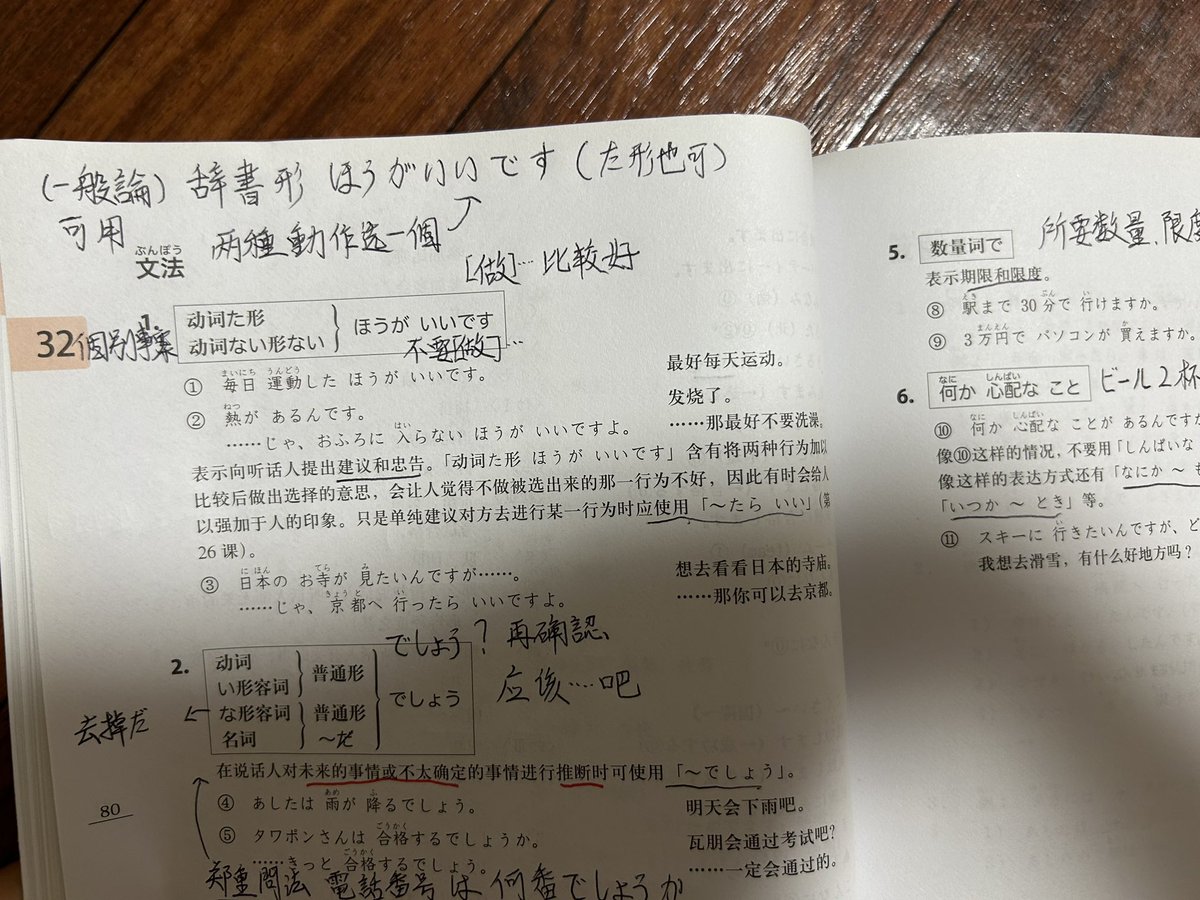 (一般論) 辞書形 ほうがいいです (た形也可)
可用 両種動作选一個
[做]…比較好
ぶんぽう
文法
32
個別事案
1.
动词た形
动词ない形ない
ほうが いいです
不要[做]…
まいにち うんどう
① 毎日 運動した ほうが いいです。 最好每天运动。
ねつ
② 熱が あるんです。 发烧了。
はい
……じゃ、おふろに 入らない ほうが いいですよ。 ……那最好不要洗澡。
表示向听话人提出建议和忠告。「动词た形 ほうが いいです」含有将两种行为加以
比较后做出选择的意思，会让人觉得不做被选出来的那一行为不好，因此有时会给人
以强加于人的印象。只是单纯建议对方去进行某一行为时应使用「～たら いい」(第
26 课)。
に ほん てら み
③ 日本の お寺が 見たいんですが……。 想去看看日本的寺庙。
きょう と い
……じゃ、京都へ 行ったら いいですよ。 ……那你可以去京都。
でしょう？再確認
应该…吧
2.
动词
い形容词
普通形
な形容词
名词
普通形
～だ
でしょう
去掉だ
在说话人对未来的事情或不太确定的事情进行推断时可使用「～でしょう」。
あめ ふ
④ あしたは 雨が 降るでしょう。 明天会下雨吧。
ごうかく
⑤ タワポンさんは 合格するでしょうか。 瓦朋会通过考试吧？
ごうかく
……きっと 合格するでしょう。 ……一定会通过的。
郑重問法 電話番号は何番でしょうか
80
5. 数量词で 所要数量、限度
表示期限和限度。
えき ぷん い
⑧ 駅まで 30分で 行けますか。
まんえん か
⑨ 3万円で パソコンが 買えますか。
なに しんぱい
6. 何か 心配な こと ビール2杯
なに しんぱい
⑩ 何か 心配な ことが あるんですか
像⑩这样的情况，不要用「しんぱいな
像这样的表达方式还有「なにか ～ も
「いつか ～ とき」等。
い
⑪ スキーに 行きたいんですが、ど
我想去滑雪，有什么好地方吗？